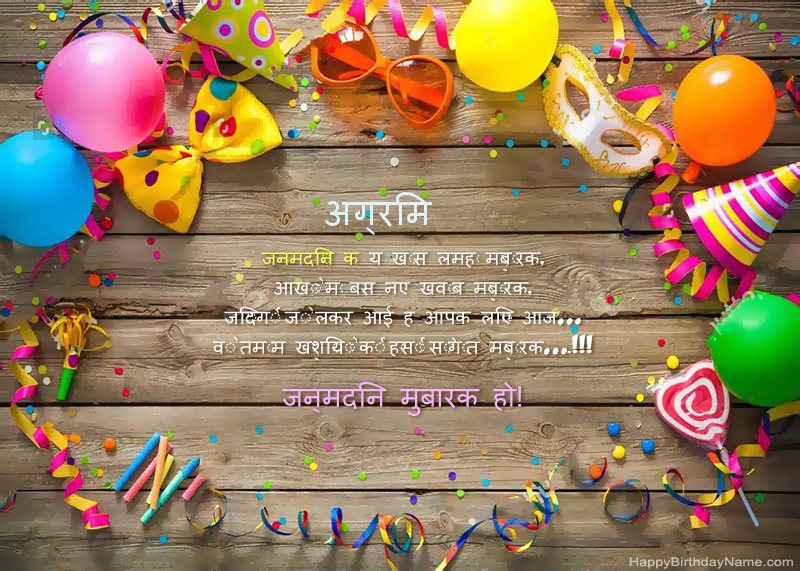 अग्रमि
जनमदनि क य खास लमह मबारक,
आखोम बस नए खवाब मबारक,
जदिगी जो लेकर आई ह आपक लएि आज...
वो तमाम खशयिो की हसी सागात मबारक...!!!
जन्मदनि मुबारक हो!
HappyBirthdayName.com